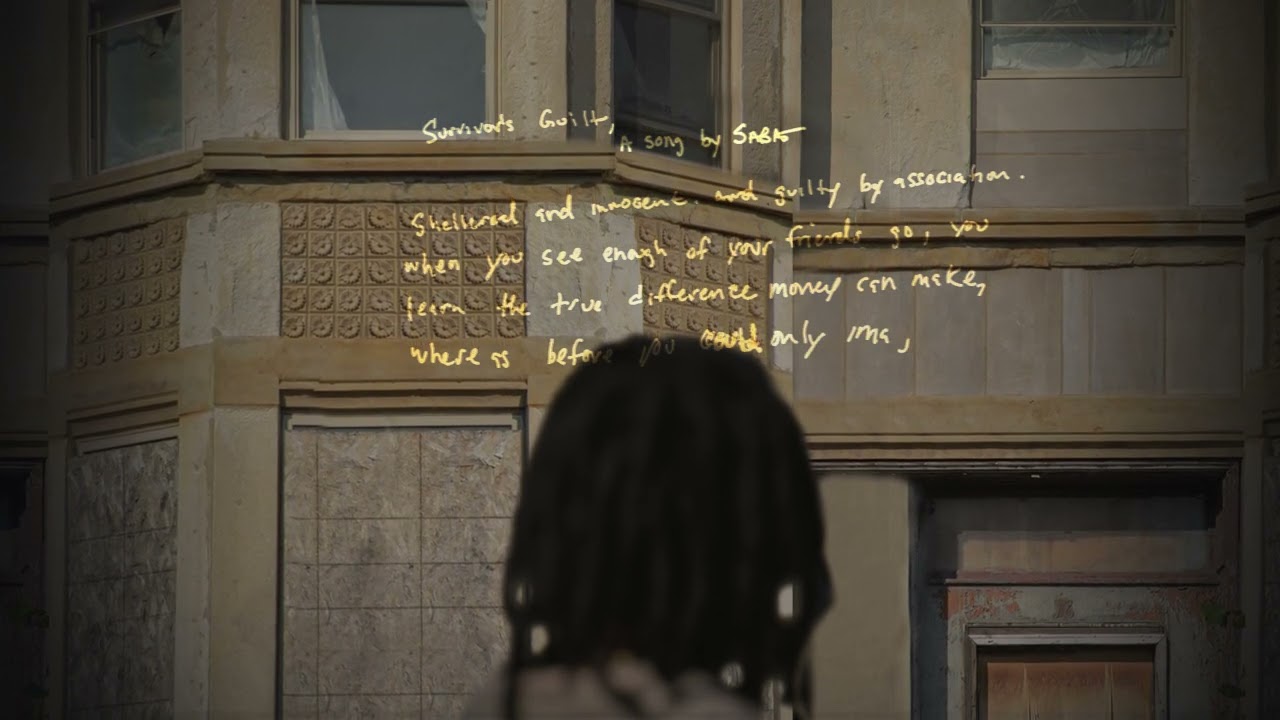 Survivor's Guilt, A song by SABA
Sheltered and innocent. and guilty by association.
when you see enough of your friends go, you
learn the true difference money can make,
where as before you could only ima,